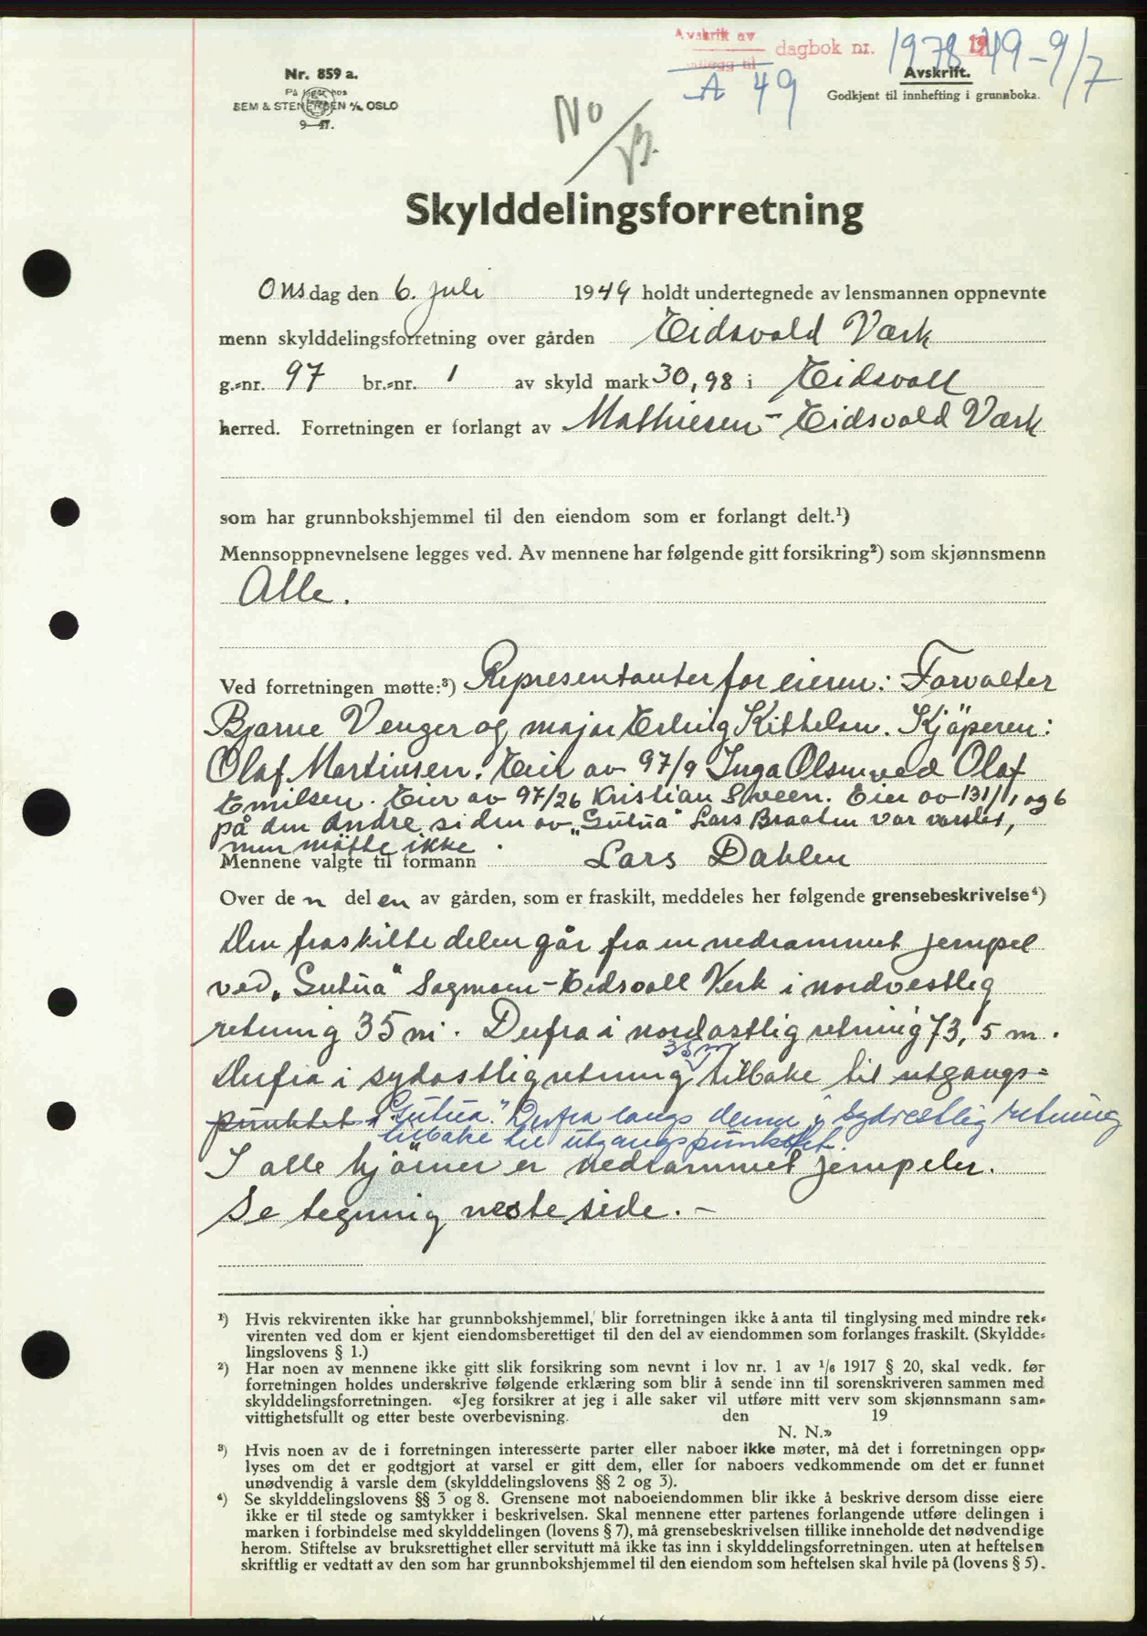 Avskrik av
dagbok nr. 1978 1949-9/7
innlegg til
A 49
Avskrift.
Godkjent til innhefting i grunnboka.
Nr. 859 a.
På lager hos
SEM & STENERSEN A/S, OSLO
9-47.
No
Skylddelingsforretning
Onsdag den 6. juli 1949 holdt undertegnede av lensmannen oppnevnte
menn skylddelingsforretning over gården Eidsvold Værk
g.-nr. 97 br.-nr. 1 av skyld mark 30,98 i Eidsvoll
herred. Forretningen er forlangt av Mathiesen - Eidsvold Værk
som har grunnbokshjemmel til den eiendom som er forlangt delt.¹)
Mennsoppnevnelsene legges ved. Av mennene har følgende gitt forsikring²) som skjønnsmenn
Alle.
Ved forretningen møtte:³) Representanter for eieren: Forvalter
Bjarne Venger og major Erling Kittelsen. Kjöperen:
Olaf Martinsen. Eier av 97/9 Inga Olsen ved Olaf
Emilsen. Eier av 97/26 Kristian Sveen. Eier av 131/1 og 6
på den andre siden av „Gutua“ Lars Braaten var varslet,
men møtte ikke.
Mennene valgte til formann Lars Dahlen
Over den delen av gården, som er fraskilt, meddeles her følgende grensebeskrivelse⁴)
Den fraskilte delen går fra en nedrammet jernpel
ved „Gutua“ Sagmoen-Eidsvoll Verk i nordvestlig
retning 35 m. Derfra i nordostlig retning 73,5 m.
Derfra i sydostlig retning 35 m tilbake til utgangs=
punktet „Gutua“. Derfra langs denne i sydvestlig retning
tilbake til utgangspunktet.
I alle hjörner er nedrammet jernpeler.
Se tegning neste side. -
¹) Hvis rekvirenten ikke har grunnbokshjemmel, blir forretningen ikke å anta til tinglysing med mindre rek-
virenten ved dom er kjent eiendomsberettiget til den del av eiendommen som forlanges fraskilt. (Skyldde-
lingslovens § 1.)
²) Har noen av mennene ikke gitt slik forsikring som nevnt i lov nr. 1 av 1/6 1917 § 20, skal vedk. før
forretningen holdes underskrive følgende erklæring som blir å sende inn til sorenskriveren sammen med
skylddelingsforretningen. «Jeg forsikrer at jeg i alle saker vil utføre mitt verv som skjønnsmann sam-
vittighetsfullt og etter beste overbevisning. den 19
N. N.»
³) Hvis noen av de i forretningen interesserte parter eller naboer ikke møter, må det i forretningen opp-
lyses om det er godtgjort at varsel er gitt dem, eller for naboers vedkommende om det er funnet
unødvendig å varsle dem (skylddelingslovens §§ 2 og 3).
⁴) Se skylddelingslovens §§ 3 og 8. Grensene mot naboeiendommen blir ikke å beskrive dersom disse eiere
ikke er til stede og samtykker i beskrivelsen. Skal mennene etter partenes forlangende utføre delingen i
marken i forbindelse med skylddelingen (lovens § 7), må grensebeskrivelsen tillike inneholde det nødvendige
herom. Stiftelse av bruksrettighet eller servitutt må ikke tas inn i skylddelingsforretningen. uten at heftelsen
skriftlig er vedtatt av den som har grunnbokshjemmel til den eiendom som heftelsen skal hvile på (lovens § 5).